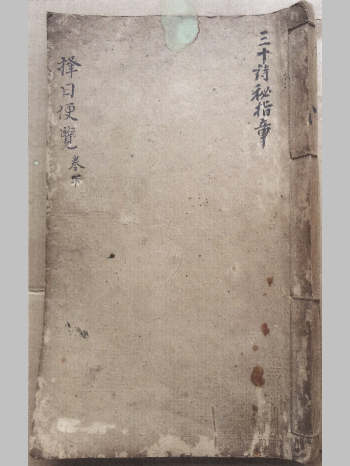 三十诗秘指章
择日便覽 卷下